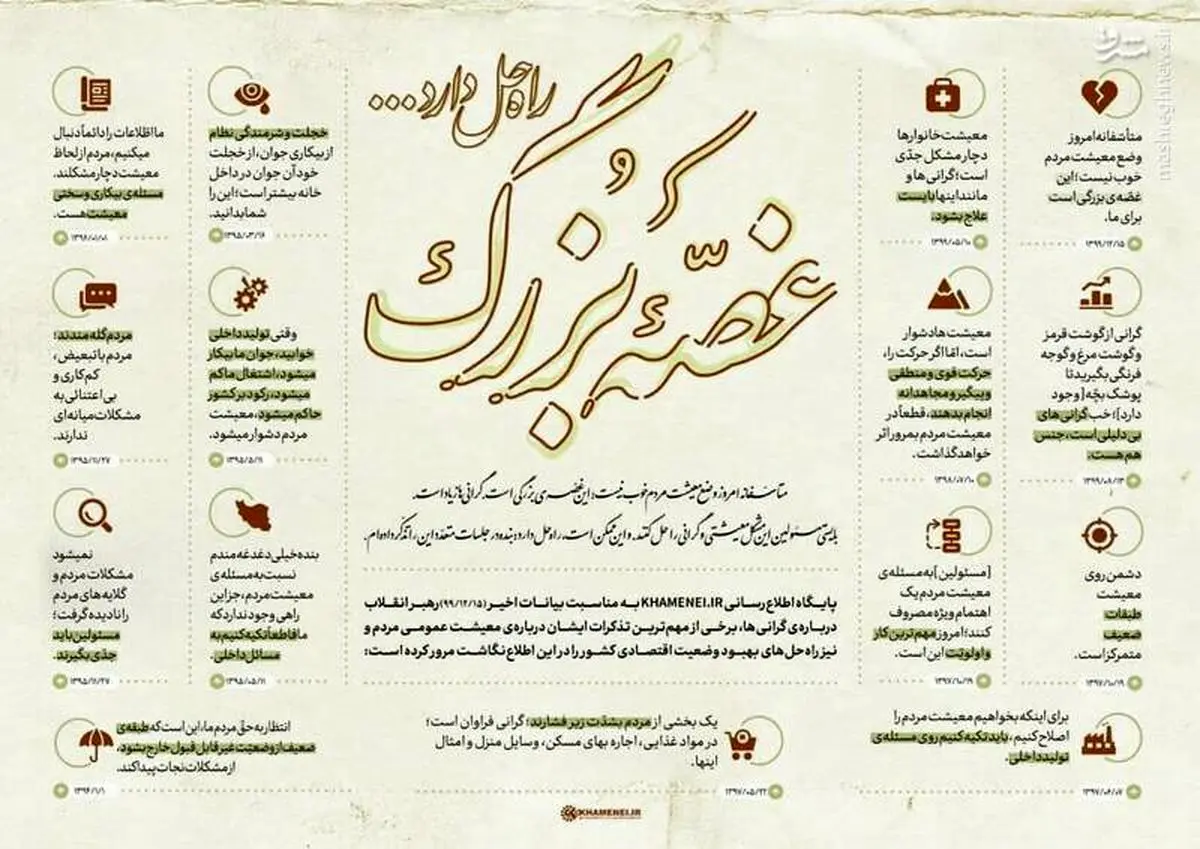 راه حل دارد...
غصّهٔ بُزرگ
متأسفانه امروز وضع معیشت مردم خوب نیست؛ این غصّه‌ی بزرگی است. گرانی‌ها زیاد است.
بایستی مسئولین این مشکل معیشتی و گرانی را حل کنند. و این ممکن است، راه‌حل دارد؛ بنده در جلسات متعدد این را تذکّر داده‌ام.
پایگاه اطلاع رسانی KHAMENEI.IR به مناسبت بیانات اخیر (۹۹/۱۲/۱۵) رهبر انقلاب
درباره‌ی گرانی‌ها، برخی از مهم‌ترین تذکرات ایشان درباره‌ی معیشت عمومی مردم و
نیز راه‌حل‌های بهبود وضعیت اقتصادی کشور را در این اطلاع‌نگاشت مرور کرده است:
متأسّفانه امروز
وضع معیشت مردم
خوب نیست؛ این
غصّه‌ی بزرگی است
برای ما.
۱۳۹۹/۱۲/۱۵
معیشت خانوارها
دچار مشکل جدّی
است؛ گرانی‌ها و
مانند اینها بایست
علاج بشود.
۱۳۹۹/۰۵/۱۰
گرانی از گوشت قرمز
و گوشت مرغ و گوجه
فرنگی بگیرید تا
پوشک بچّه [وجود
دارد]؛ خب گرانی‌های
بی‌دلیلی است، جنس
هم هست.
۱۳۹۹/۰۸/۱۳
معیشت‌ها دشوار
است، امّا اگر حرکت را،
حرکت قوی و منطقی
و پیگیر و مجاهدانه
انجام بدهند، قطعاً در
معیشت مردم بمرور اثر
خواهد گذاشت.
۱۳۹۸/۰۷/۱۰
دشمن روی
معیشت
طبقات
ضعیف
متمرکز است.
۱۳۹۷/۱۰/۱۹
[مسئولین] به مسئله‌ی
معیشت مردم یک
اهتمام ویژه مصروف
کنند؛ امروز مهم‌ترین کار
و اولویّت این است.
۱۳۹۷/۱۰/۱۹
برای اینکه بخواهیم معیشت مردم را
اصلاح کنیم، باید تکیه کنیم روی مسئله‌ی
تولید داخلی.
۱۳۹۷/۰۶/۰۷
یک بخشی از مردم بشدّت زیر فشارند؛ گرانی فراوان است؛
در مواد غذایی، اجاره بهای مسکن، وسایل منزل و امثال
اینها.
۱۳۹۷/۰۵/۲۲
خجلت و شرمندگی نظام
از بیکاری جوان، از خجلت
خود آن جوان در داخل
خانه بیشتر است؛ این را
شما بدانید.
۱۳۹۵/۰۳/۱۶
ما اطّلاعات را دائماً دنبال
میکنیم، مردم از لحاظ
معیشت دچار مشکلند.
مسئله‌ی بیکاری و سختی
معیشت هست.
۱۳۹۶/۰۱/۰۱
وقتی تولید داخلی
خوابید، جوان ما بیکار
میشود، اشتغال ما کم
میشود، رکود بر کشور
حاکم میشود، معیشت
مردم دشوار میشود.
۱۳۹۵/۵/۱۱
مردم گله‌مندند؛
مردم با تبعیض،
کم‌کاری و
بی‌اعتنائی به
مشکلات میانه‌ای
ندارند.
۱۳۹۵/۱۱/۲۷
بنده خیلی دغدغه مندم
نسبت به مسئله‌ی
معیشت مردم، جز این
راهی وجود ندارد که
ما قاطعاً تکیه کنیم به
مسائل داخلی.
۱۳۹۵/۰۵/۱۱
نمیشود
مشکلات مردم و
گلایه‌های مردم
را نادیده گرفت؛
مسئولین باید
جدّی بگیرند.
۱۳۹۵/۱۱/۲۷
انتظار به حقّ مردم ما، این است که طبقه‌ی
ضعیف از وضعیّت غیر قابل قبول خارج بشود،
از مشکلات نجات پیدا کند.
۱۳۹۶/۱/۱
KHAMENEI.IR
مشرق
mashreghnews.ir